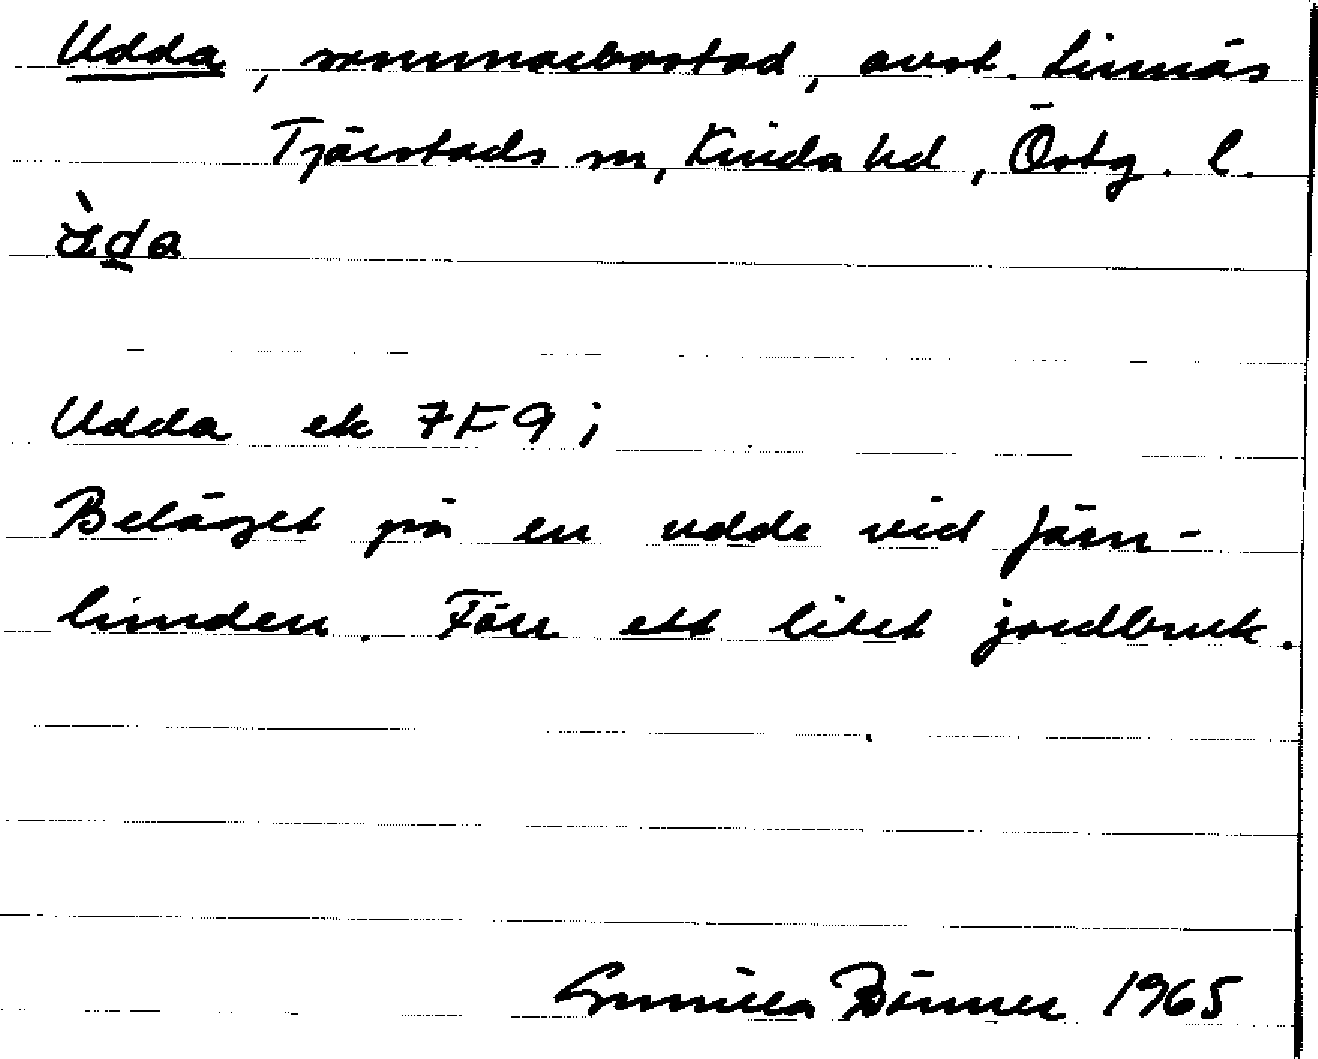 Udda, sommarbostad, avst. Linnäs
Tjärstads sn, Kinda hd, Östg. l.
Udda ek 7F9i
Beläget på en udde vid Järn-
lunden. Förr ett litet jordbruk.
Gunilla 1965